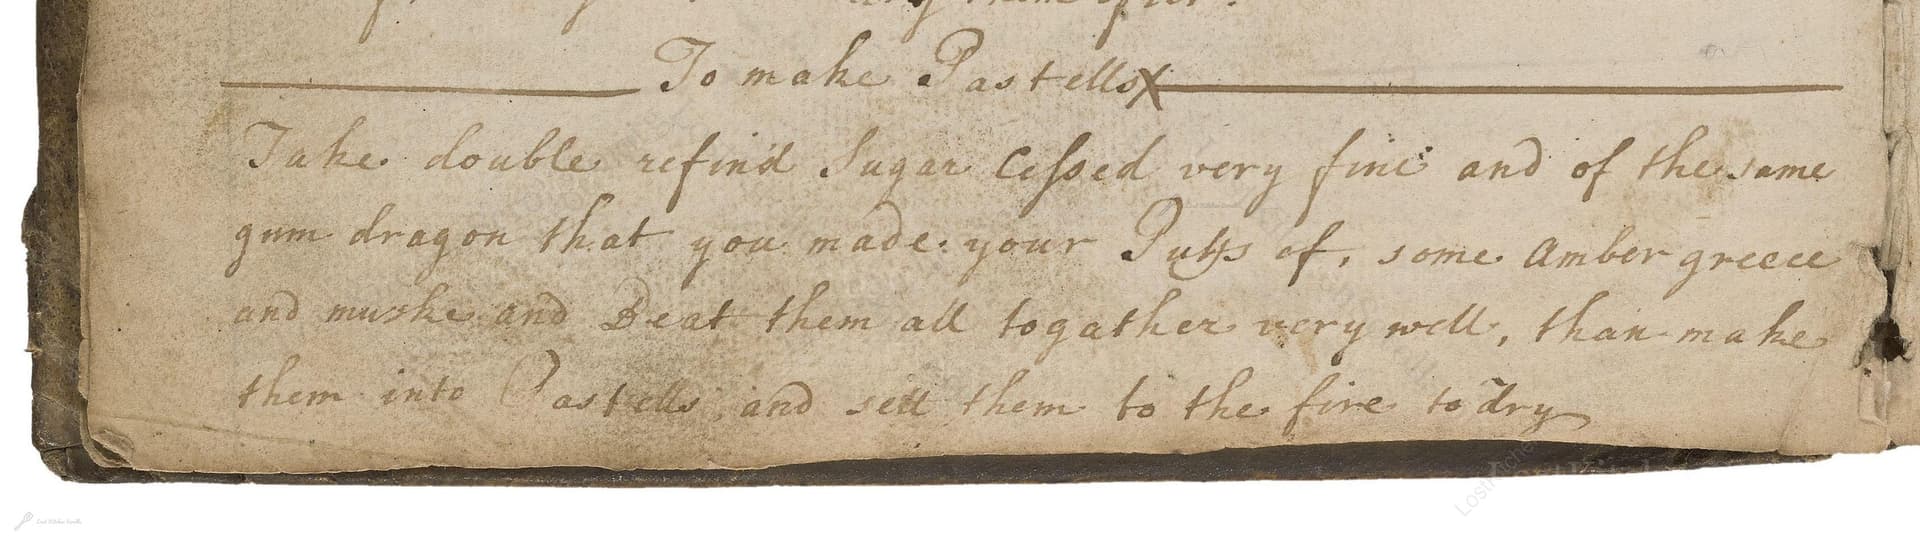 any them after.
To make Pastells X
Take double refin'd Sugar Cessed very fine and of the same
gum dragon that you made your Puffs of, some Amber greece
and muske and Beat them all togather very well, than make
them into Pastells, and sett them to the fire to dry
Lost Kitchen Scrolls